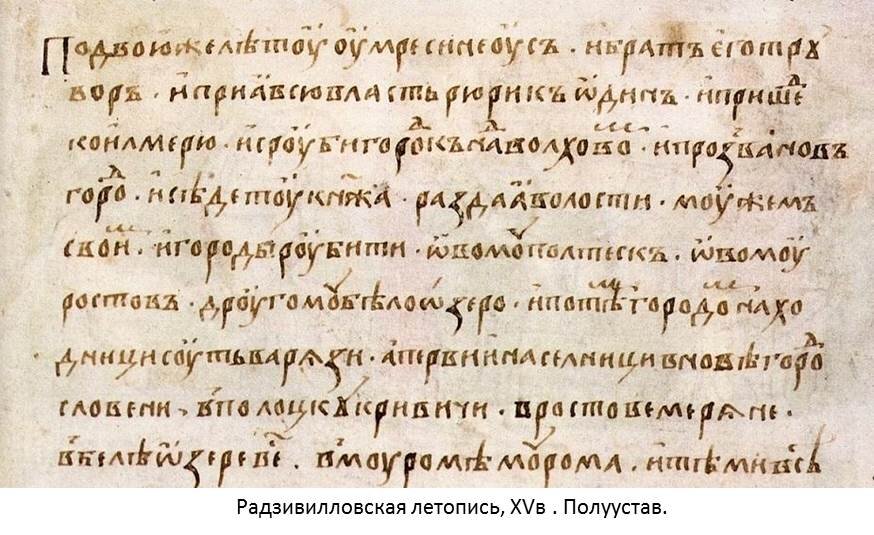 По двою же лѣтоу оумре синеоусъ · и братъ его трꙋ
воръ · и приꙗ всю власть рюрикъ ѿдинъ · и пришеⷣ
ко илмерю · и сроуби городⷪкъ наⷣ волховоⷨ · и прозва новъ
гороⷣ · и сѣде тоу кнѧжа · раздаꙗ волости · моужемъ
своиⷨ · и городы роубити · ѿвомꙋ полтескъ · ѿвомоу
ростовъ · дроугомꙋ бѣлоѡзеро · и по тѣⷨ городоⷨ нахо
дници соуть варѧзи · а первии населници в новѣгороⷣ
словени · в полоцкꙋ кривичи · в ростове мерѧне ·
в белѣѡзере веⷭ · в моуромѣ мꙋрома · и тѣми всѣ
Радзивилловская летопись, XVв . Полуустав.